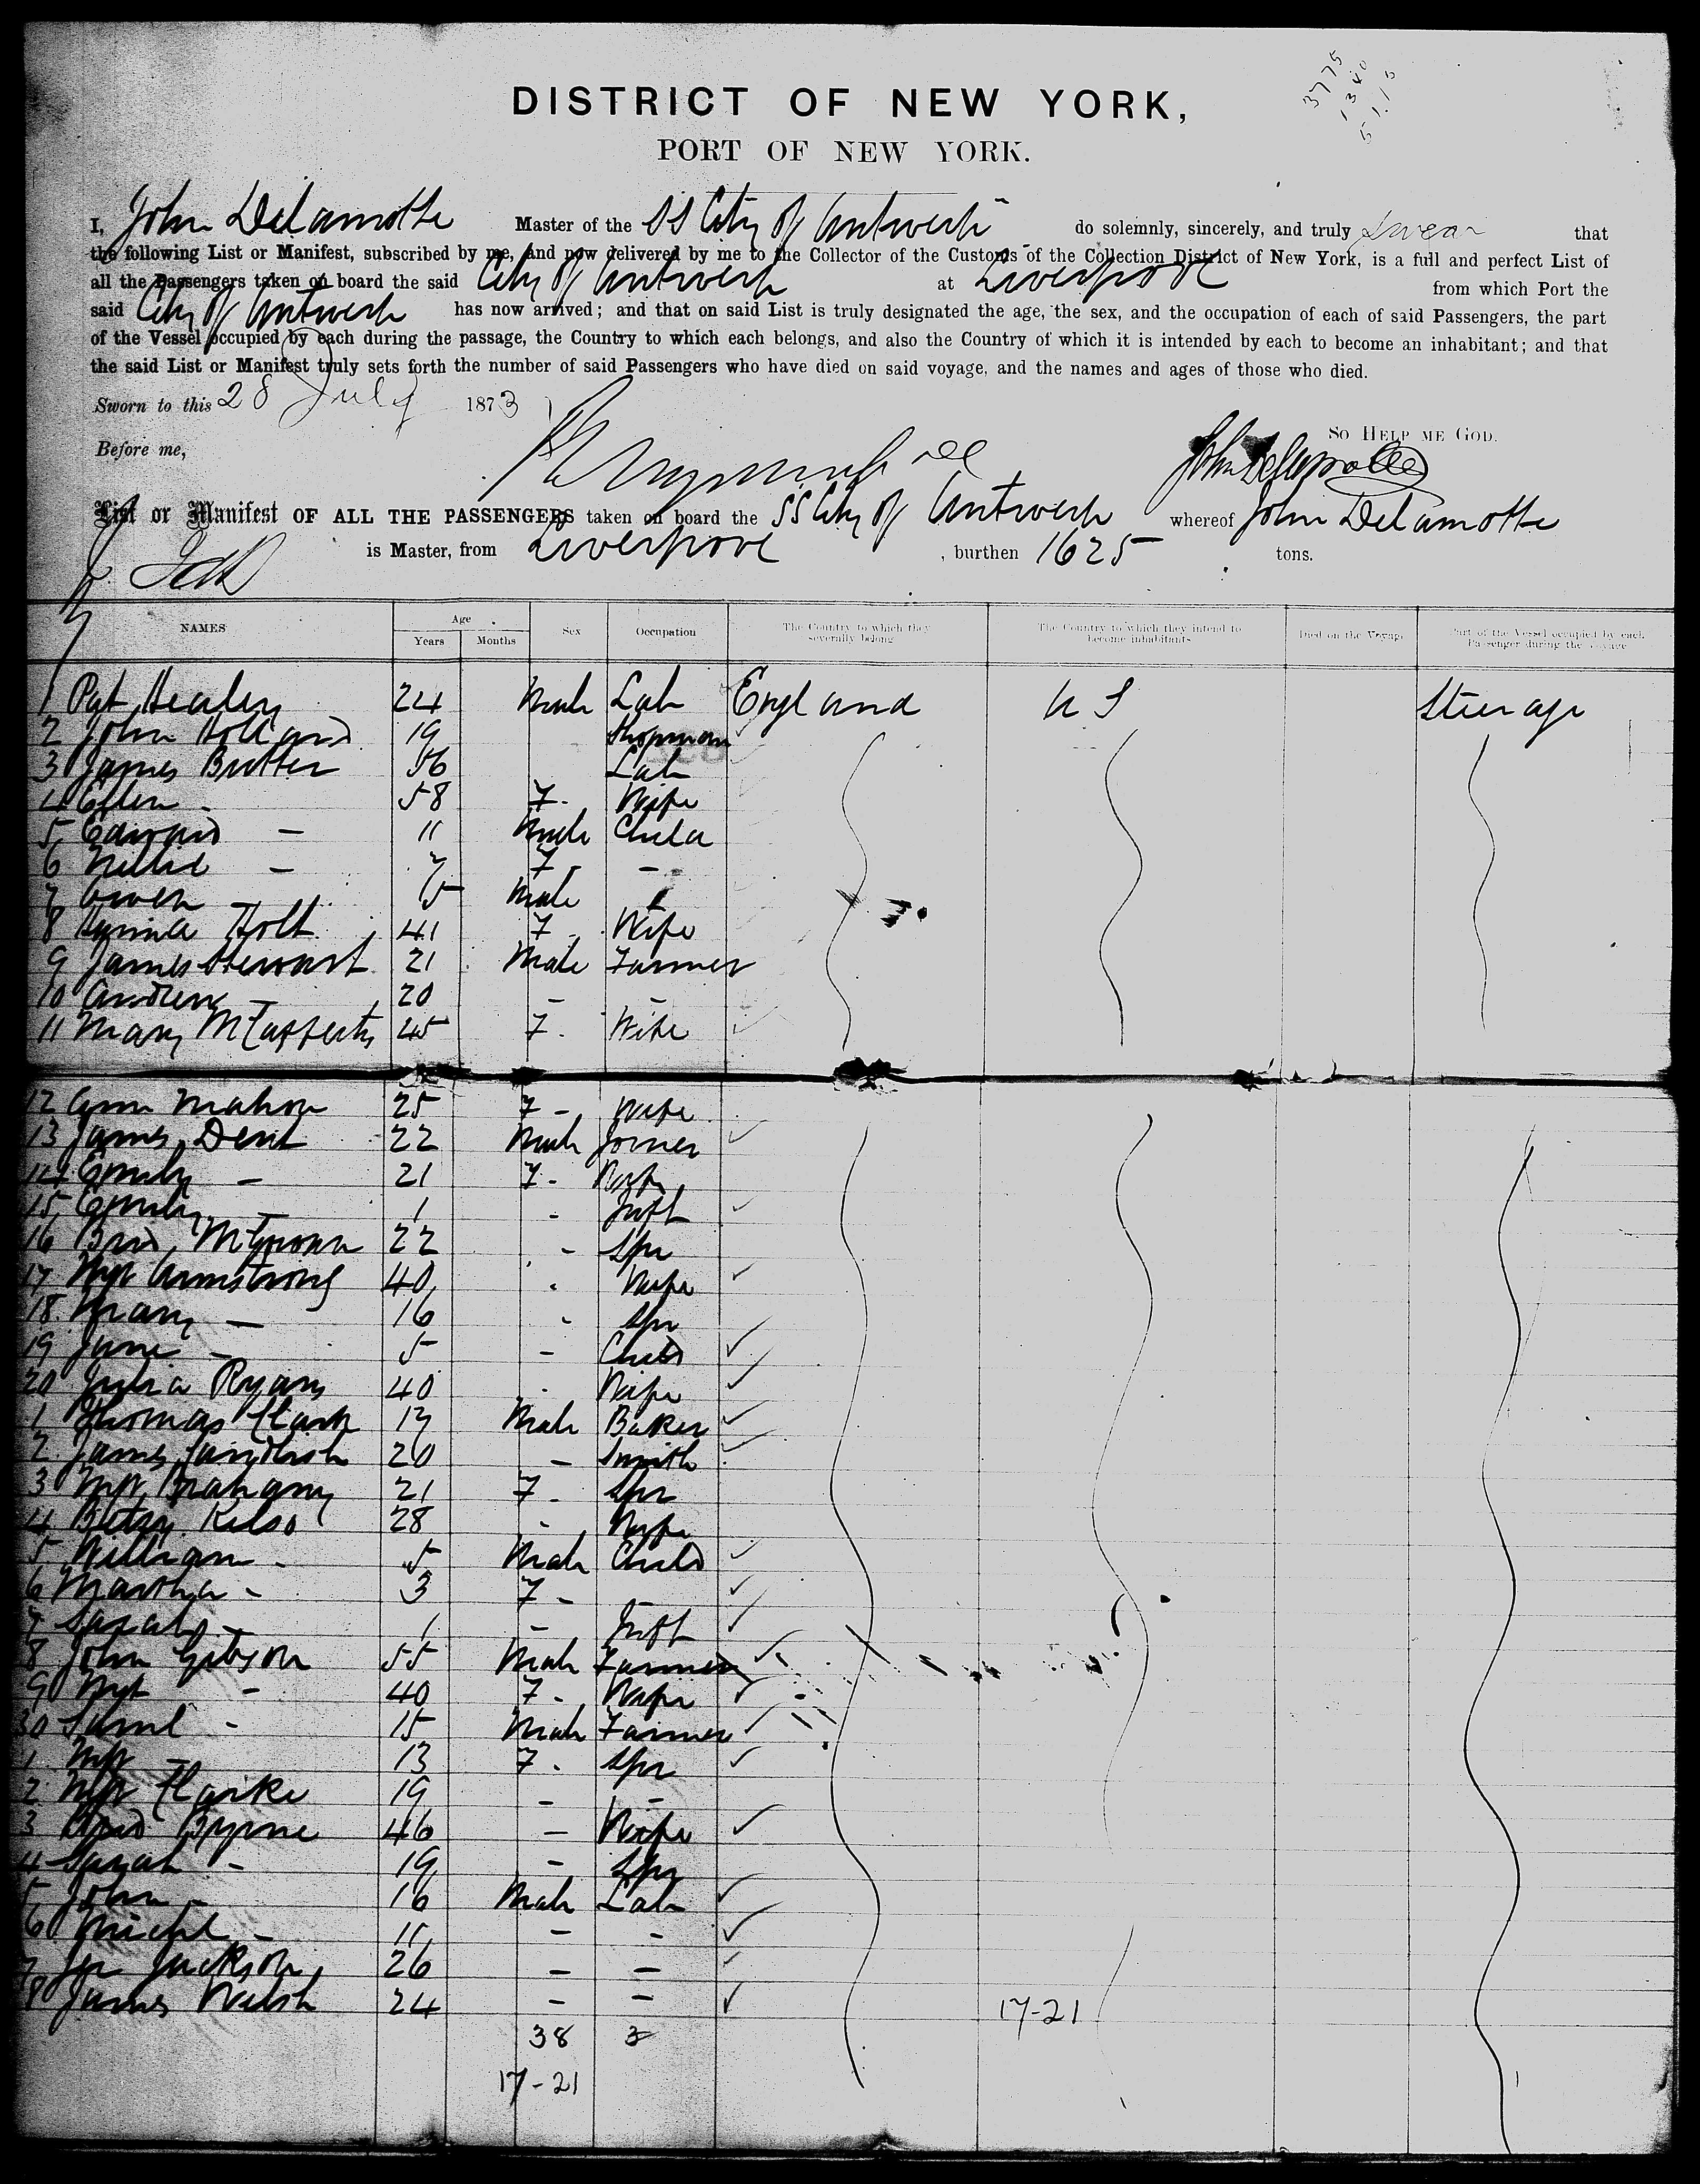 3775
DISTRICT OF NEW YORK,
PORT OF NEW YORK.
I, John Delamotte Master of the SS City of Antwerp do solemnly, sincerely, and truly swear that
the following List or Manifest, subscribed by me, and now delivered by me to the Collector of the Customs of the Collection District of New York, is a full and perfect List of
all the Passengers taken on board the said City of Antwerp at Liverpool from which Port the
said City of Antwerp has now arrived; and that on said List is truly designated the age, the sex, and the occupation of each of said Passengers, the part
of the Vessel occupied by each during the passage, the Country to which each belongs, and also the Country of which it is intended by each to become an inhabitant; and that
the said List or Manifest truly sets forth the number of said Passengers who have died on said voyage, and the names and ages of those who died.
Sworn to this 28 July 1873
So Help me God.
Before me, John Delamotte
List or Manifest OF ALL THE PASSENGERS taken on board the SS City of Antwerp whereof John Delamotte
is Master, from Liverpool , burthen 1625 tons.
NAMES Age Years Months Sex Occupation The Country to which they severally belong The Country to which they intend to become inhabitants Died on the Voyage Part of the Vessel occupied by each Passenger during the voyage
1 Pat Healey 24 Male Lab England U S Steerage
2 John Holland 19 Shopman
3 James Butter 56 Lab
4 Ellen - 58 F - Wife
5 Edward - 11 Male Child
6 Nellie - 7 F -
7 Owen 5 Male
8 Holt 41 F Wife
9 James Stewart 21 Male Farmer
10 Andrew - 20 - -
11 Mary McCafferty 45 F - Wife
12 Ann Mahon 25 F - Wife
13 James Dent 22 Male Joiner
14 Emily - 21 F - Wife
15 Emily - 1 - Inft
16 Brid McGowan 22 - Spr
17 Mgt Armstrong 40 - Wife
18 Mary - 16 - Spr
19 Jane - 5 - Child
20 Julia Ryan 40 - Wife
1 Thomas Clark 17 Male Baker
2 James 20 - Smith
3 Mgt 21 F - Spr
4 Betsy Kelso 28 - Wife
5 William - 5 Male Child
6 Martha - 3 F -
7 Sarah - 1 - Inft
8 John Gibson 55 Male Farmer
9 Mgt - 40 F - Wife
30 Saml - 15 Male Farmer
1 Mgt - 13 F - Spr
2 Mgt Clarke 19 - -
3 Brid Byrne 46 - Wife
4 Sarah - 19 - Spr
5 John - 16 Male Lab
6 Michl - 11 - -
7 Jackson 26 - -
8 James Welsh 24 - - 17-21
38 3
17-21